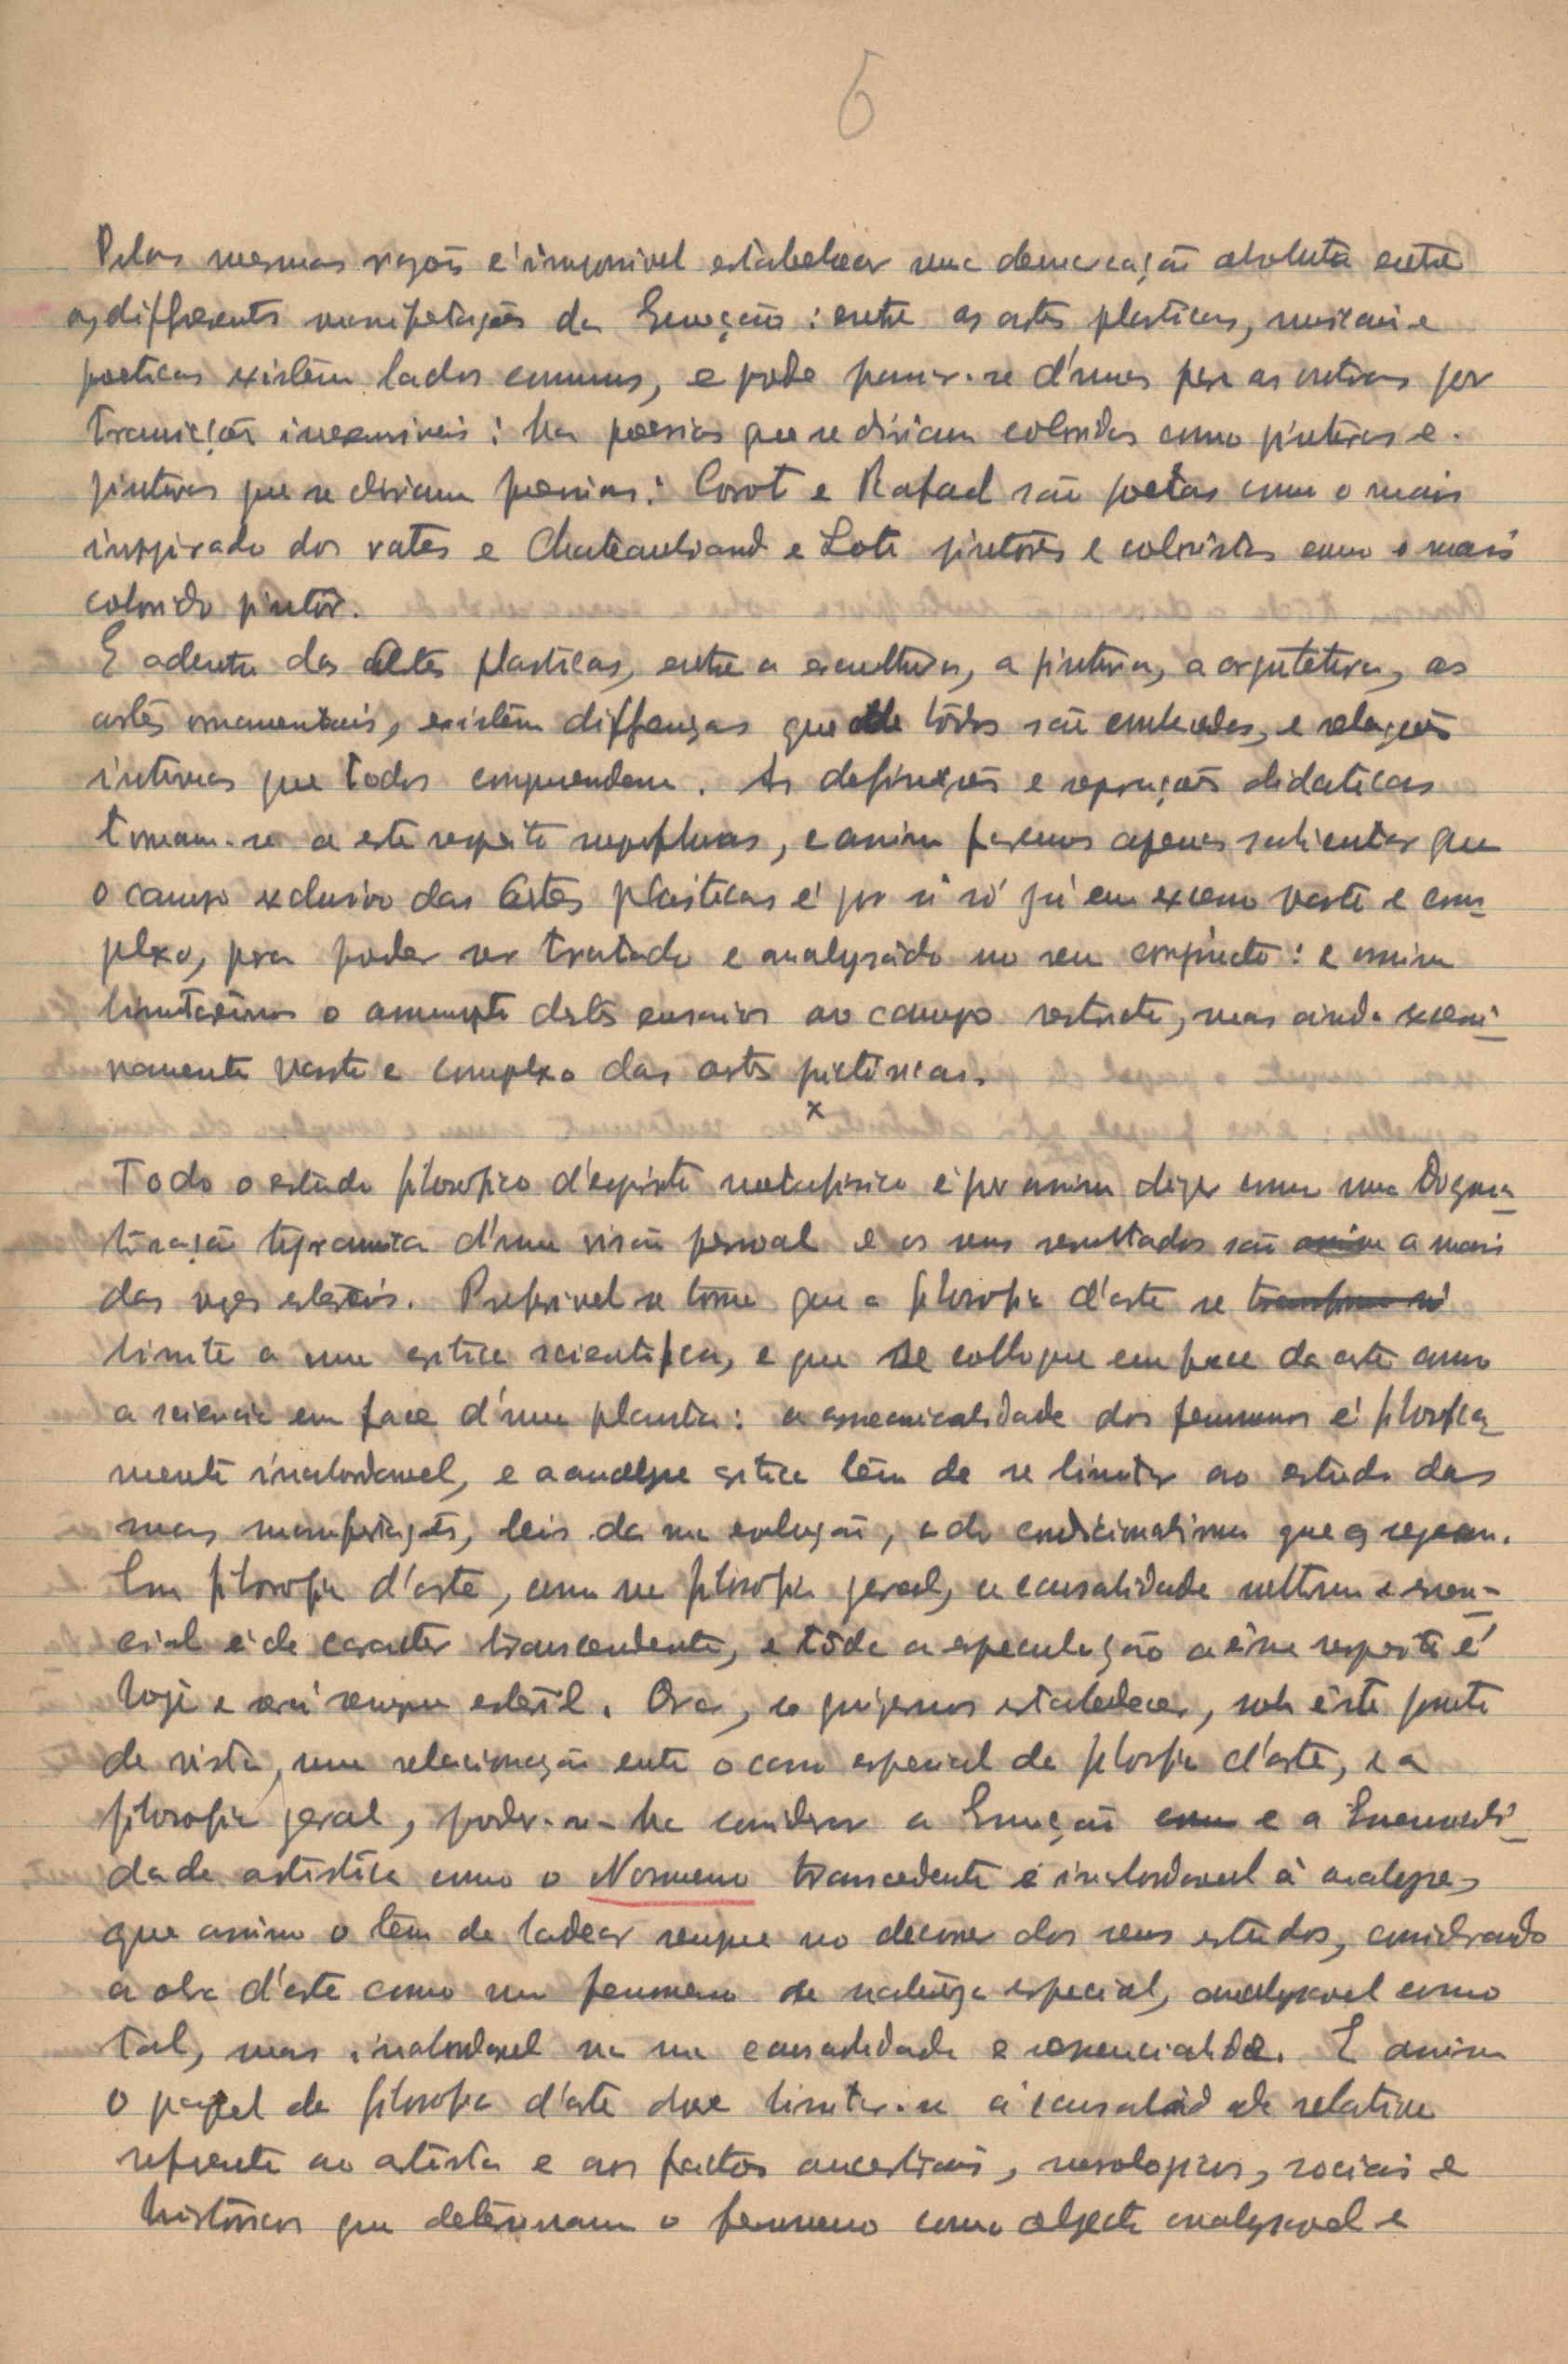 6
Pelas mesmas razões é impossivel estabelecer uma demarcação absoluta entre
as differents manifestações da Emoção: entre as artes plasticas, musicais e
poeticas existem lados comuns, e pode passar-se d'umas para as outras por
transições insensiveis: ha poesias que se diriam coloridas como pinturas e
pinturas que se diriam poesias: Corot e Rafael são poetas como o mais
inspirado dos vates e Chateaubriand e Loti pintores e coloristas como o mais
colorido pintor.
E adentro das Artes plasticas, entre a escultura, a pintura, a arquitetura, as
artes ornamentais, existem diffenças que todos são conhecidas, e relações
intimas que todos comprendem. As definições e separações didaticas
tornam-se a este respeito superfluas, e assim faremos apenas salientar que
o campo exclusivo das Artes plásticas é por si só já em excesso vasto e com-
plexo, para poder ser tratado e analysado no seu conjuncto: e assim
limitaremos o assumpto destes ensaios ao campo restricto, mas ainda excessi-
vamente vasto e complexo das artes pictóricas.
x
Todo o estudo filosofico d'espirito metafisico é por assim dizer como uma Dogma-
tisação tyrannica d'uma visão pessoal e os seus resultados são assim a mais
das vezes estereis. Preferivel se torna que a filosofia d'arte se transforme só
limite a uma critica scientifica, e que se colloque em face da arte como
a sciencia em face d'uma planta: a essencialidade dos fenomenos é filosofica-
mente inabordavel, e a analyse critica têm de se limitar ao estudo das
suas manifestações, leis da sua evolução, e do condicionalismo que as regem.
Em filosofia d'arte, como na filosofia geral, a causalidade ultima e essen-
cial é de caracter transcendente, e tôda a especulação a êsse respeito é
hoje e será sempre esteril. Ora, se quizermos estabelecer, sob êste ponto
de vista, uma relacionação entre o caso especial da filosofia d'arte, e a
filosofia geral, poder-se-ha considerar a Emoção como e a Emocionali-
dade artistica como o Noumeno transcedente e inabordavel à analyse,
que assim o têm de ladear sempre no decorrer dos seus estudos, considerando
a obra d'arte como um fenomeno de natureza especial, analysavel como
tal, mas inabordavel na sua causalidade e essencialidade. E assim
o papel da filosofia d'arte deve limitar-se á causalidade relativa
referente ao artista e aos factos ancestrais, sociais e
históricos que determinam o fenomeno como objecto analysavel e